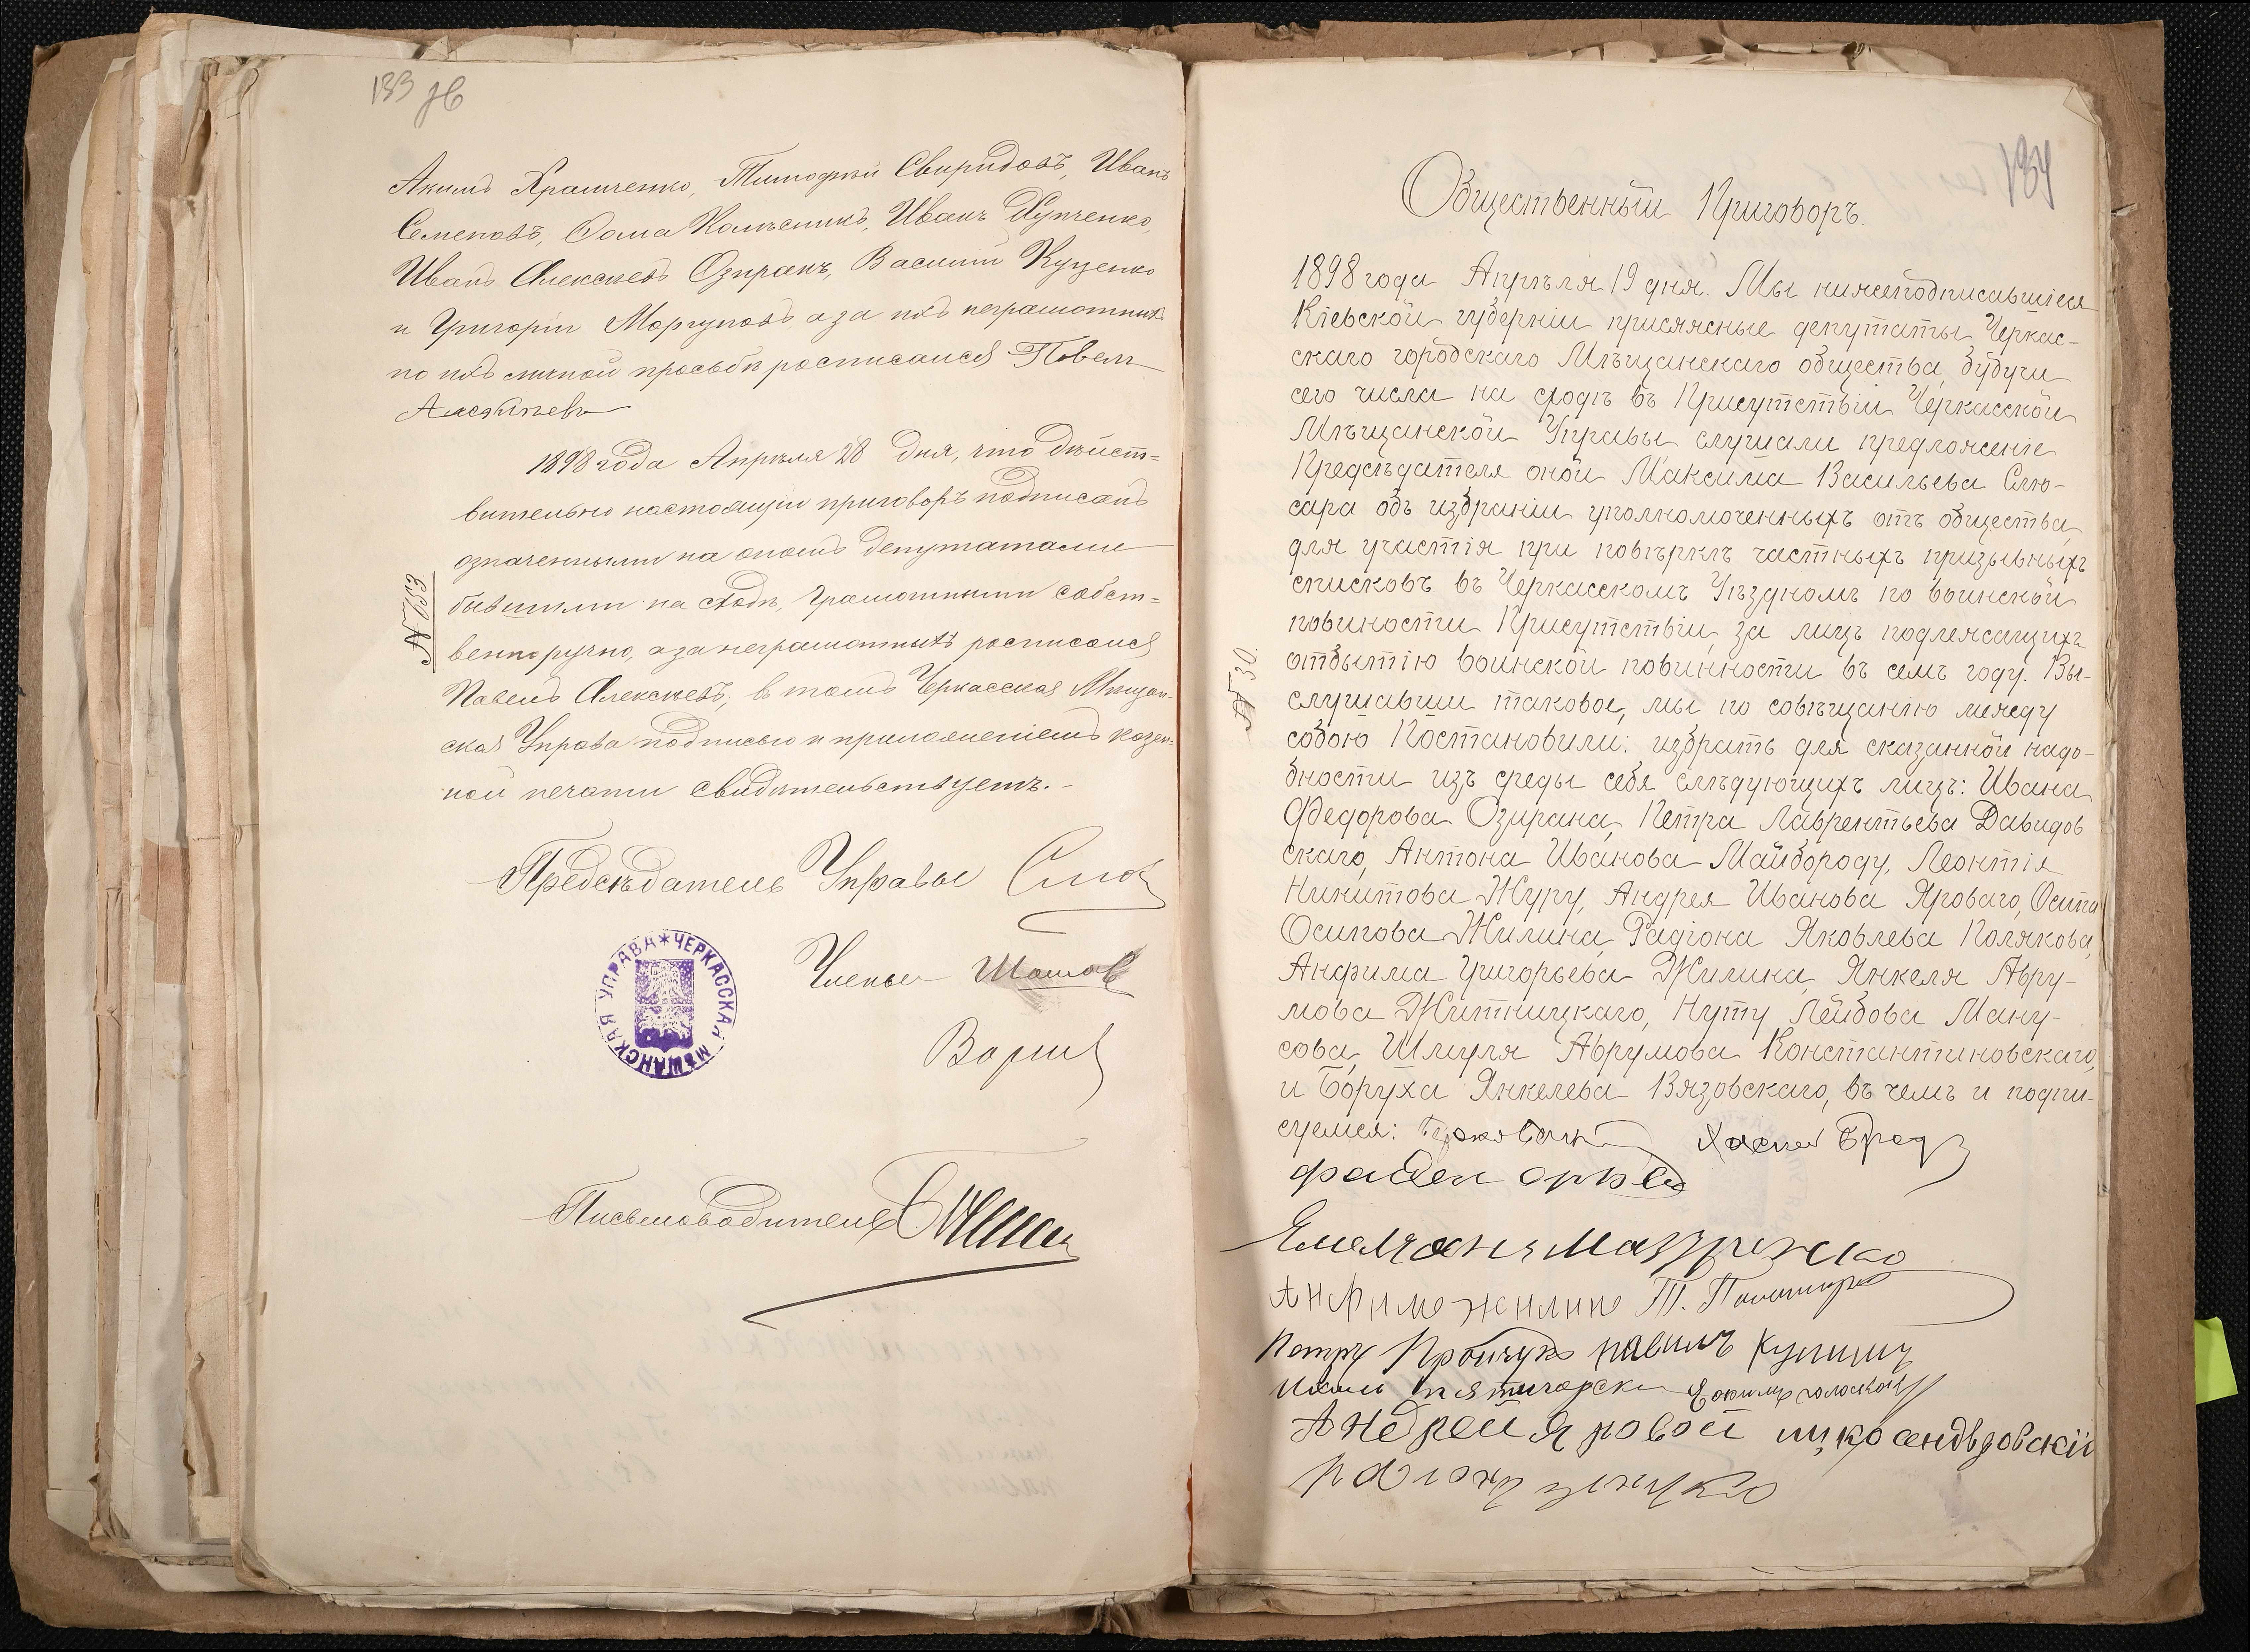 133 зв
Акимъ Храмченко, Тимофей Свиридовъ, Иванъ
Семеновъ, Фома Колесникъ, Иванъ Купченко,
Иванъ Алексѣевъ Озиранъ, Василій Куценко
и Григорій Моргуновъ а за нихъ неграмотныхъ
по ихъ личной просьбѣ росписался Павелъ
Алексѣевъ
1898 года Апрѣля 28 дня, что дѣйст=
вительно настоящій приговоръ подписанъ
означенными на ономъ депутатами
бывшими на сходѣ, грамотными собст=
венноручно, а за неграмотныхъ росписался
Павелъ Алексѣевъ, въ томъ Черкасская Мѣщан-
ская Управа подписью и приложеніемъ казен-
ной печати свидѣтельствуетъ.-
№ 613
Предсѣдатель Управы
Члены
ЧЕРКАССКАЯ МѢЩАНСКАЯ УПРАВА
Письмоводитель
134
Общественный Приговоръ.
1898 года Апрѣля 19 дня. Мы нижеподписавшіеся
Кіевской губерніи присяжные депутаты Черкас-
скаго городскаго Мѣщанскаго общества, будучи
сего числа на сходѣ въ Присутствіи Черкасской
Мѣщанской Управы слушали предложеніе
Предсѣдателя оной Максима Васильева Слю-
сара объ избраніи уполномоченныхъ отъ общества,
для участія при повѣркѣ частныхъ призывныхъ
списковъ въ Черкасскомъ Уѣздномъ по воинской
повиности Присутствіи, за лицъ подлежащихъ
отбытію воинской повинности въ семъ году. Вы-
слушавши таковое, мы по совѣщанію между
собою Постановили: избрать для сказанной надо-
бности изъ среды себя слѣдующихъ лицъ: Ивана
Федорова Озирана, Петра Лаврентьева Давидов
скаго, Антона Иванова Майбороду, Леонтія
Никитова Журу, Андрея Иванова Яроваго, Осипа
Осипова Жилина, Радіона Яковлева Полякова,
Анфима Григорьева Жилина, Янкеля Авру-
мова Житницкаго, Нуту Лейбова Ману-
сова, Шмуля Аврумова Константиновскаго,
и Боруха Янкелева Вязовскаго, въ чемъ и подпи-
суемся:
№ 30.
Анфимъ Жилинъ
Петръ
Андрей Яровой